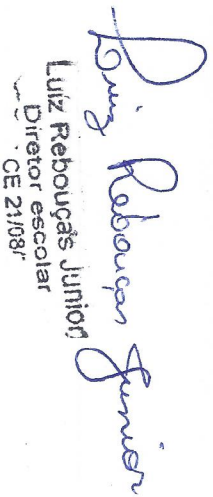 Luiz Rebouças Junior
Luiz Rebouças Junior
Diretor escolar
CE 21/08/